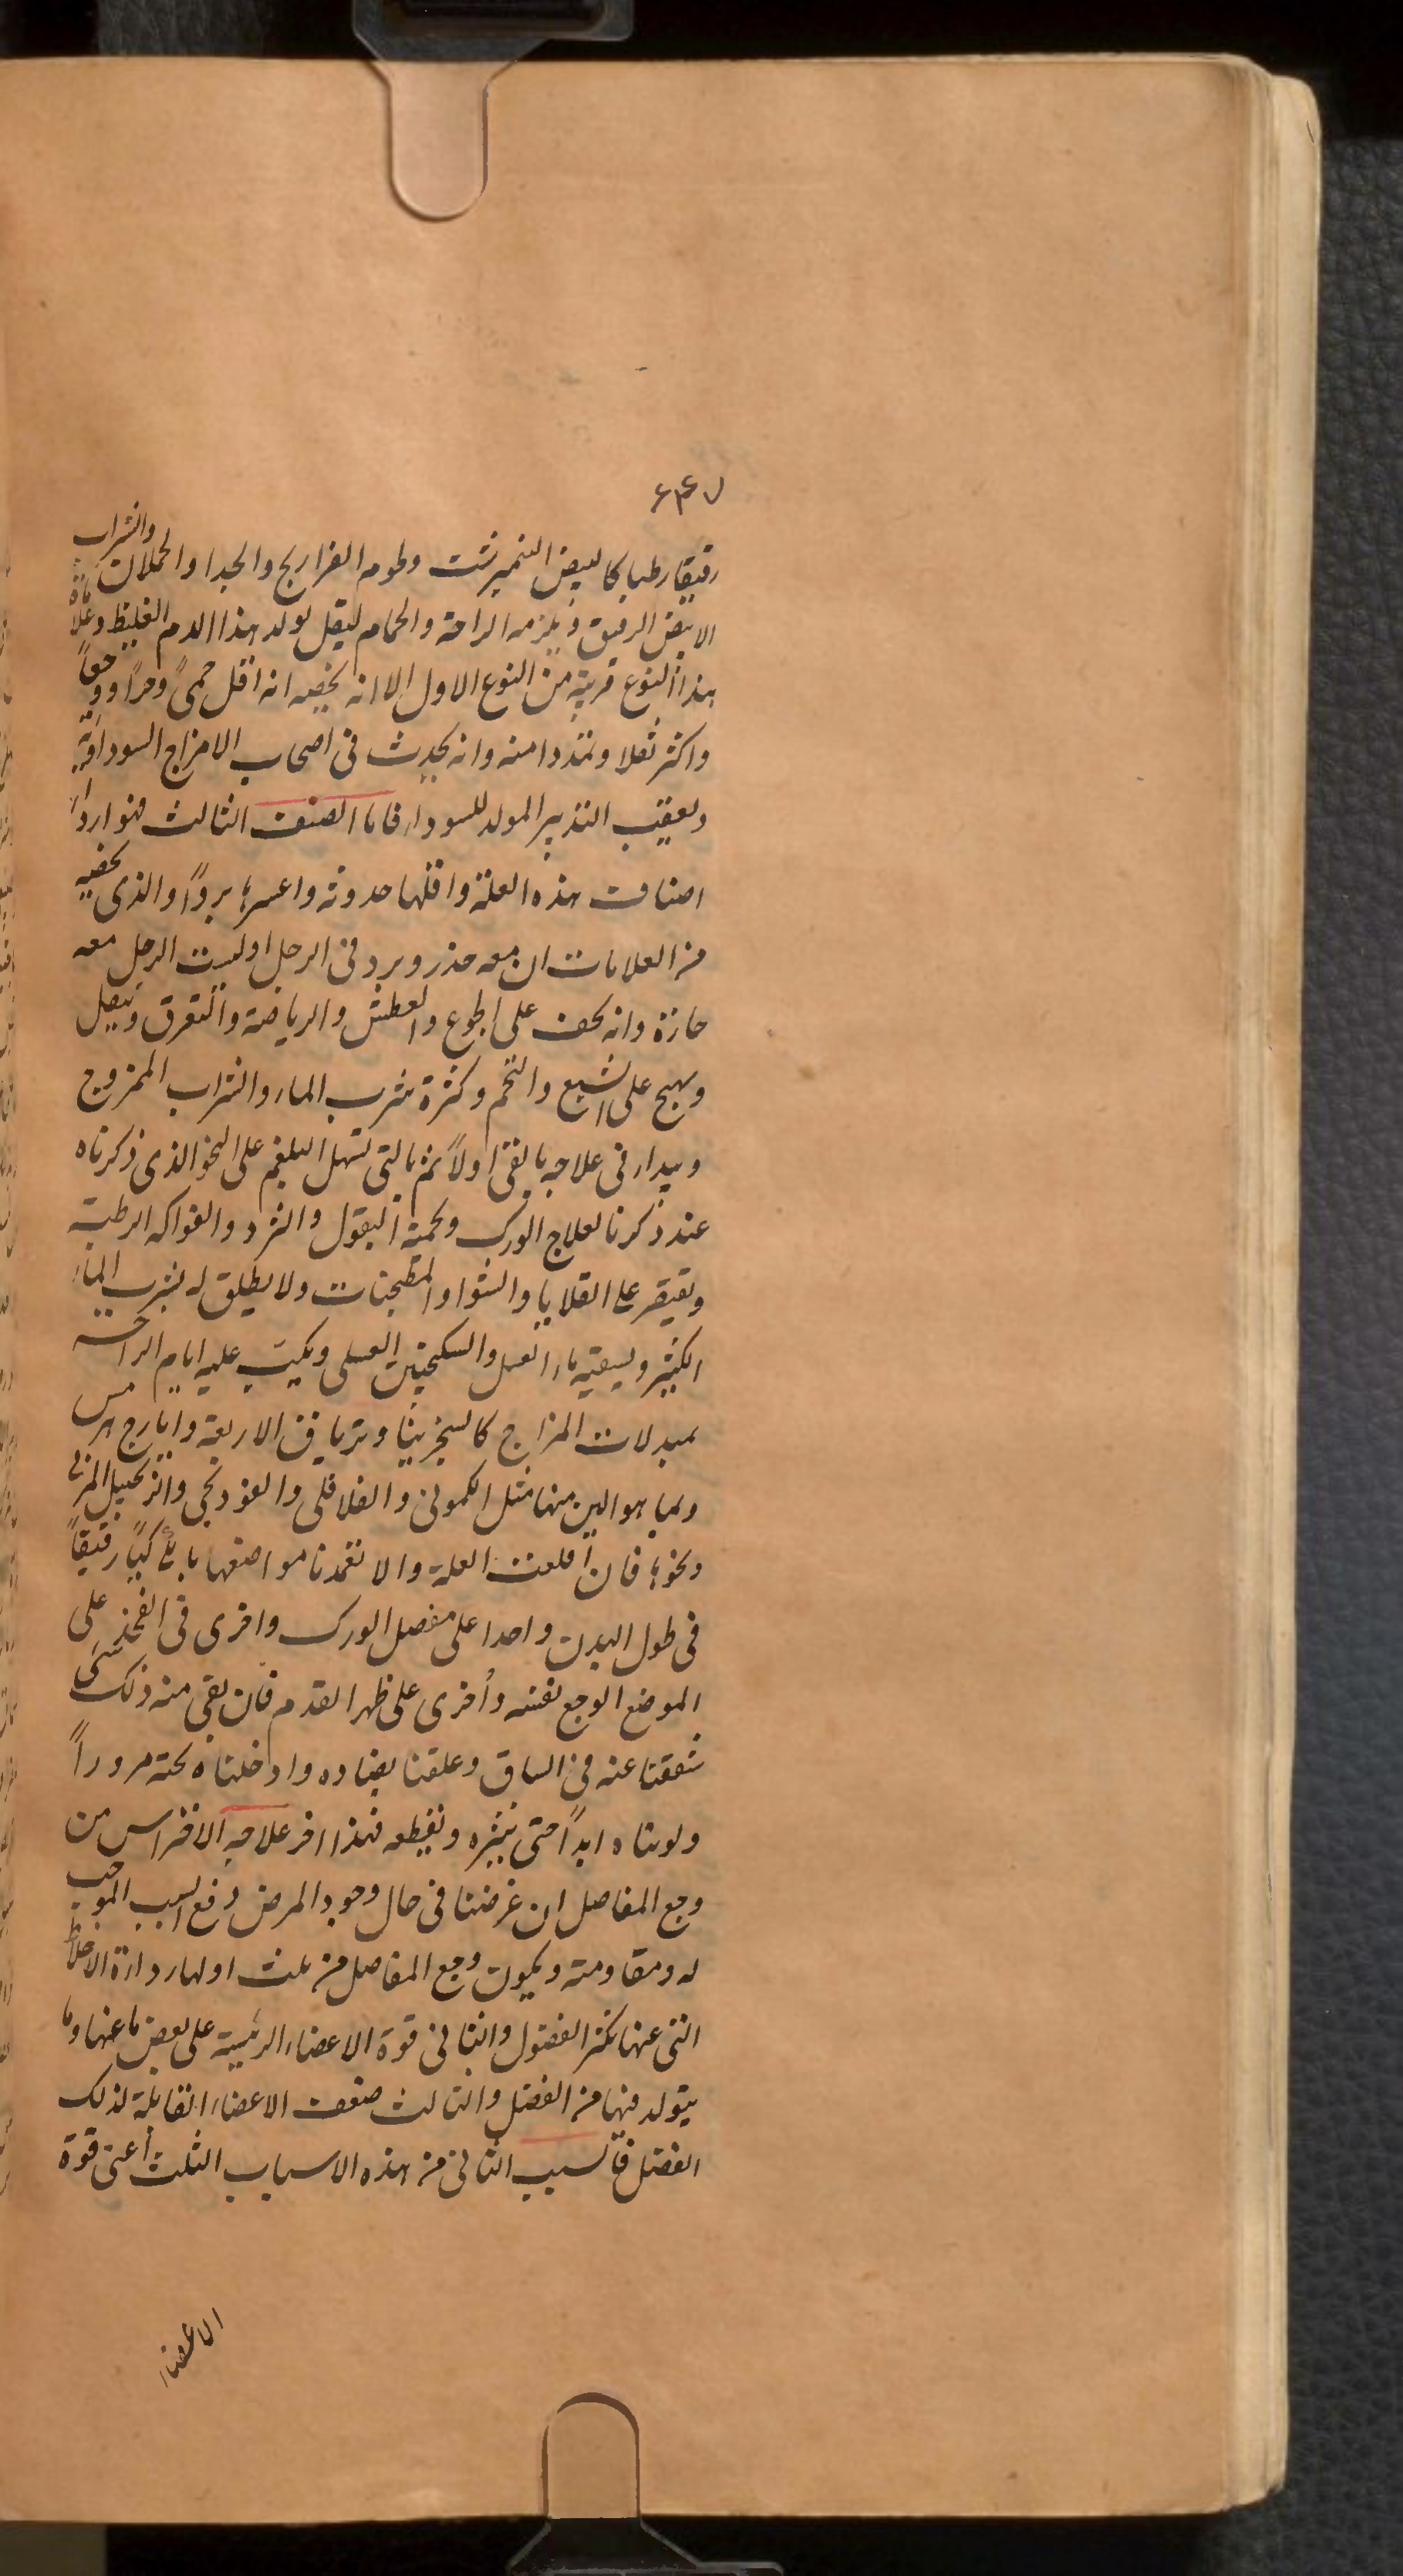 رقيقا رطبا كالبيض النمبرشت ولحوم الفراريج والجدا والحملان والشراب
الابيض الرقيق ويلزمه الراحة والحمام ليقل تولد هذا الدم الغليظ وعلامة
هذا النوع قريبة من النوع الاول الا انه يخصه انه اقل حمىً وحرًا ووجعًا
واكثر ثقلا وتمددا منه وانه يحدث فى اصحاب الامزاج السوداوية
وبعقيب التدبير المولد للسوداء فاما الصنف الثالث فهو اردأ
اصناف هذه العلة واقلها حدوثه واعسرها بروًا والذى يخصه
من العلامات ان معه خدر وبرد فى الرجل اوليست الرجل معه
حارة وانه يخف على الجوع والعطش والرياضة والتعرق ويثقل
ويهيج على الشبع والتخم وكثرة شرب الماء والشراب الممزوج
ويبداء فى علاجه بالقئ اولاً ثم بالتى تسهل البلغم على النحو الذى ذكرناه
عند ذكرنا لعلاج الورك ونحميه البقول والثرد والفواكه الرطبة
ويقتصر على القلايا والشوا والمطجنات ولا يطلق له شرب الماء
الكثير ويسقيه ماء العسل والسكنجبين العسلى ويكب عليه ايام الراحة
بمبدلات المزاج كالسجزينيا وترياق الاربعة وايارج هرمس
وبما هو الين منها مثل الكمونى والفلافلى والفودنجى والزنجبيل المربى
ونحوها فان اقلعت العلة والا تعمدنا مواضعها بان كيًا رقيقًا
فى طول البدن واحدا على مفصل الورك واخرى فى الفخذ على
الموضع الوجع نفسه وأخرى على ظهر القدم فان بقى منه ذلك شى
شققنا عنه فى الساق وعلقنا بصناره وادخلنا تحته مروداً
ولويناه ابدًا حتى ينبتره ونقطعه فهذا اخر علاجه الاقتراس من
وجع المفاصل ان غرضنا فى حال وجود المرض دفع السبب الموجب
له ومقاومته ويكون وجع المفاصل من ثلث اولها رداءة الاخلاط
التى عنها تكثر الفضول والثانى قوة الاعضاء الرئيسة على نفض ما عنها وما
يتولد فيها من الفضل والثالث ضعف الاعضاء القابلة لذلك
الفضل فالسبب الثانى من هذه الاسباب الثلث أعنى قوة
الاعضاء